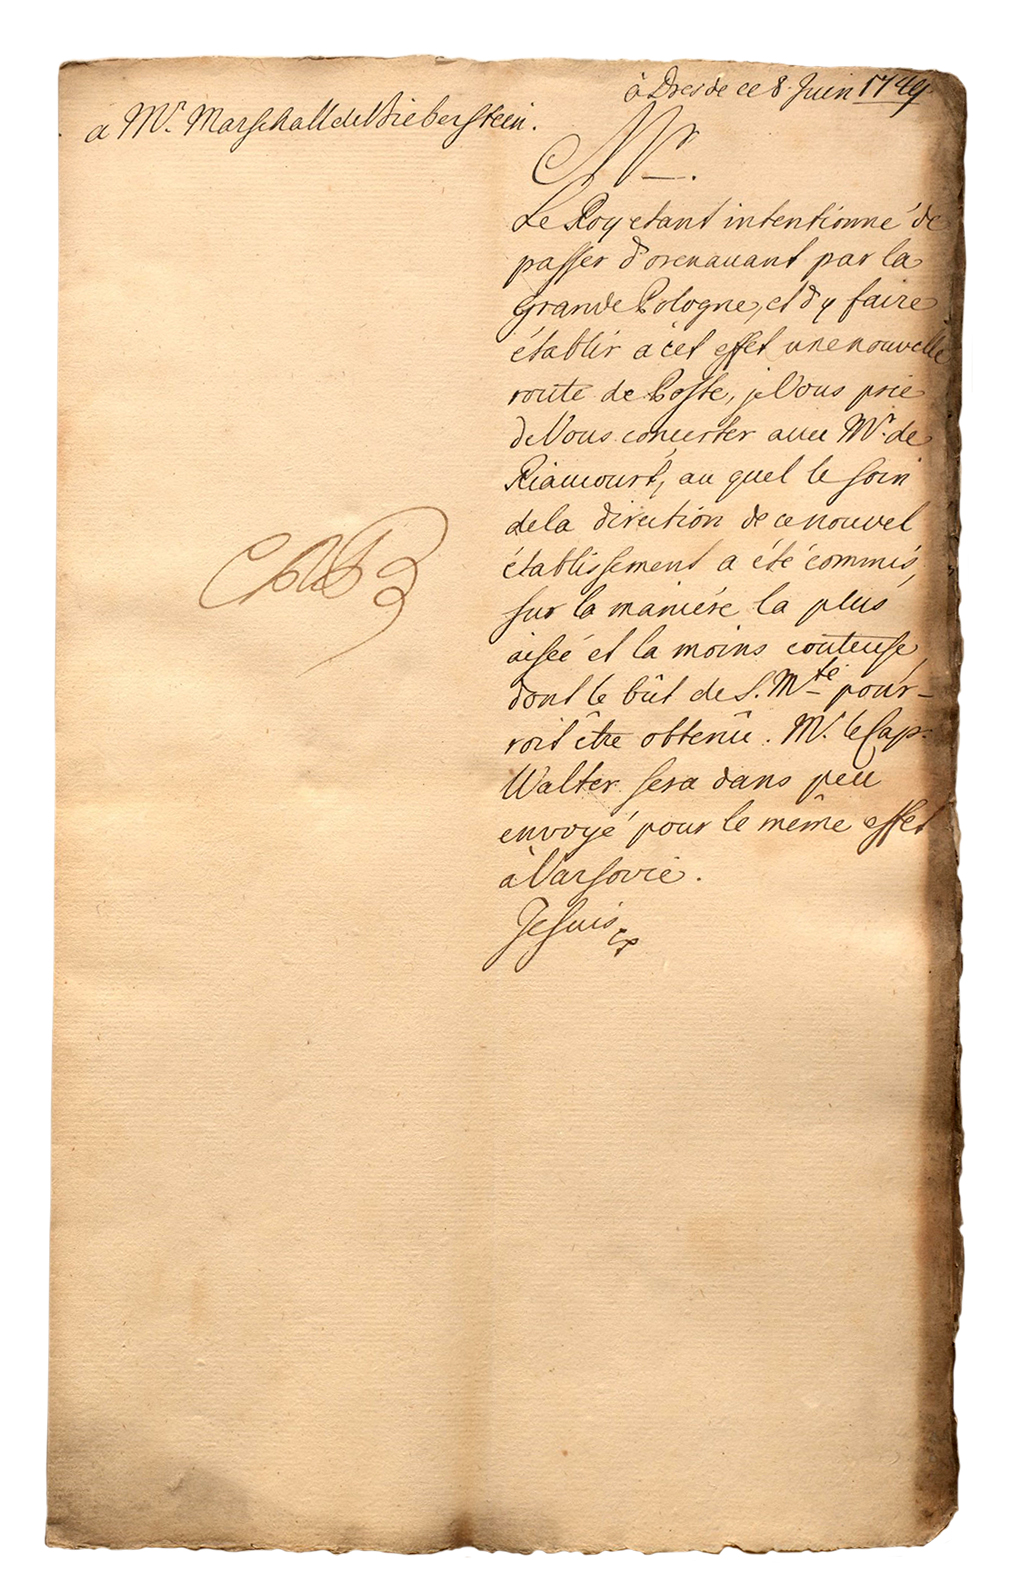 à Dresde ce 8. Juin 1749.
a Mr. Marschall de Bieberstein.
Mr.
Le Roy etant intentionné de
passer d'orenauant par la
Grande Pologne, et d'y faire
établir à cet effet une nouvelle
route de Poste, je Vous prie
de Vous concerter auec Mr. de
Riaucourt, au quel le soin
de la direction de ce nouvel
établissement a été commis,
sur la maniére la plus
aisée et la moins couteuse,
dont le bût de S. Mté pour-
roit être obtenû. Mr. le Cap:
Walter sera dans peu
envoyé pour le même effet
à Varsovie.
Je suis